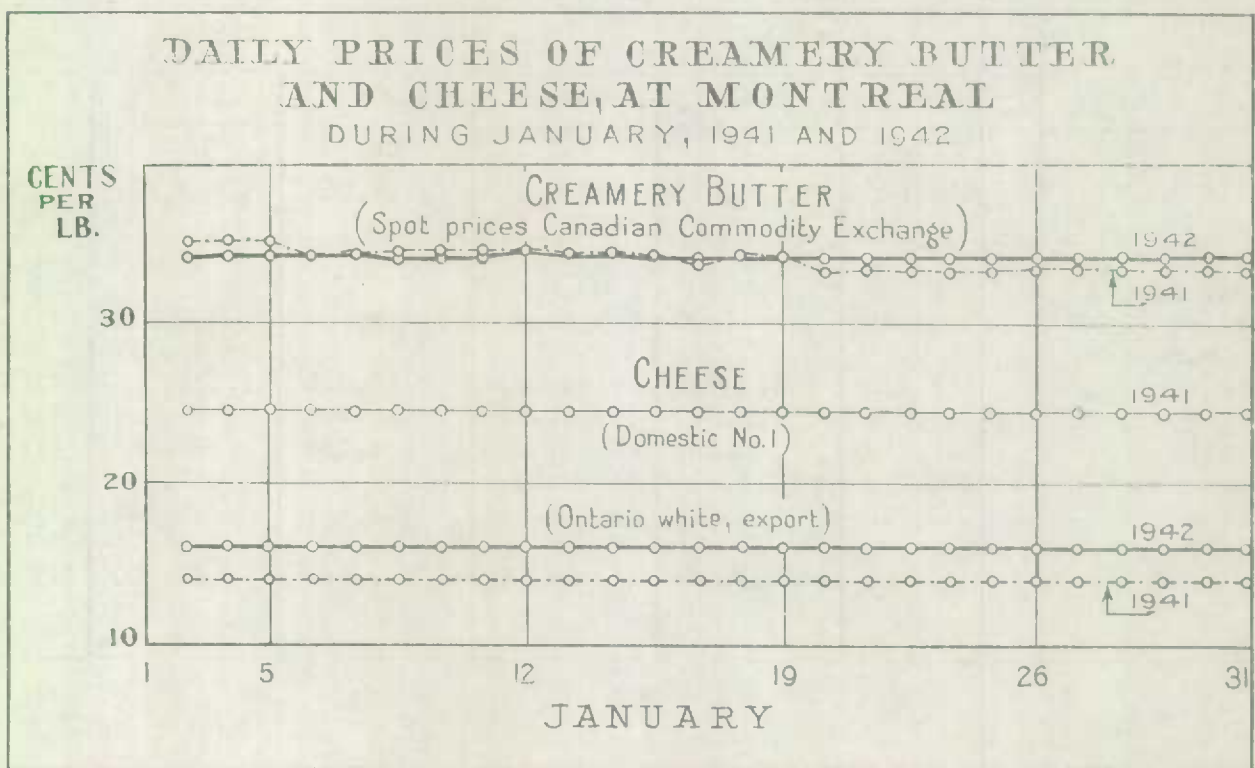 DAILY PRICES OF CREAMERY BUTTER
AND CHEESE, AT MONTREAL
DURING JANUARY, 1941 AND 1942
CENTS
PER
LB.
CREAMERY BUTTER
(Spot prices Canadian Commodity Exchange)
1942
1941
30
CHEESE
1941
(Domestic No. 1)
20
(Ontario white, export)
1942
1941
10
1 5 12 19 26 31
JANUARY